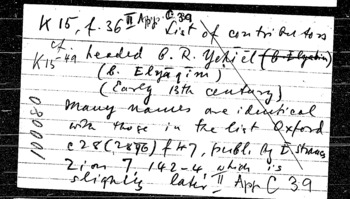 K 15, f. 36 II App C 39 List of contributors
cf.
K15-49 headed B. R. Yehiel (b. Elyakim)
(b. Elyaqim)
(Early 13th century)
Many names are identical
with those in the list Oxford
c 28 (2876) f 47, publ. by E. Strauss
Zion 7, 142-4, which is
slightly later II App C 39
100080